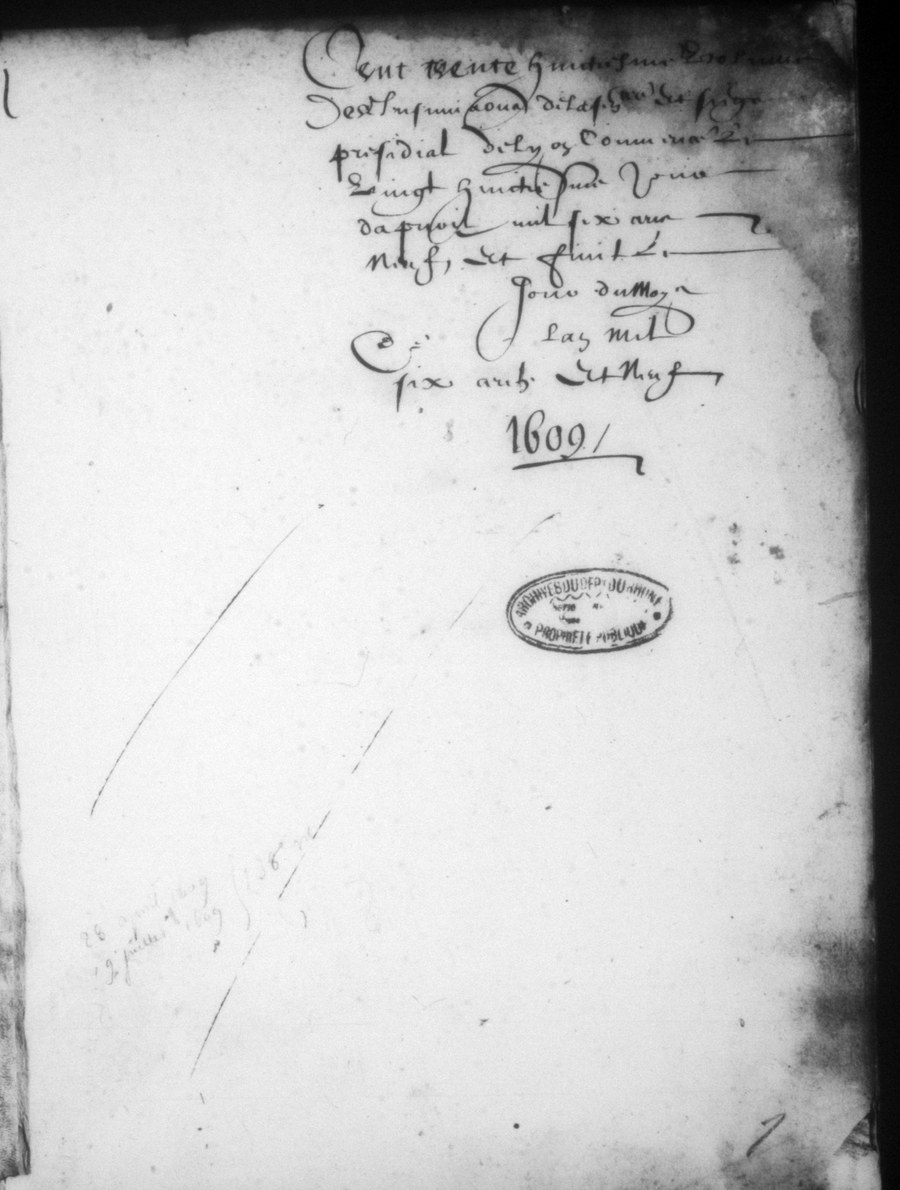 Cent trente huictiesme Vollume
Des Insinuaõns de la sen^cee et siege
presidial de Lyon Commencé Le
Vingt huictiesme Jour
dapvril mil six cens
Neuf, Et finit Le
Jour du Moys
Lan Mil
six cens Et Neuf
1609/
ARCHIVES DU DEPT DU RHONE
PROPRIÉTÉ PUBLIQUE
28 avril 1609
9 juillet 1609
138e
1